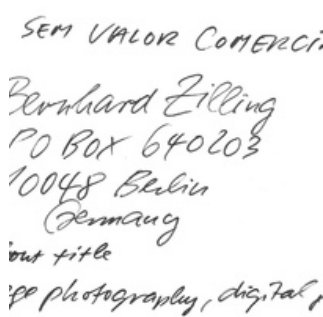 SEM VALOR COMERCI
Bernhard Zilling
PO BOX 640203
10048 Berlin
Germany
out title
ge photography, digital